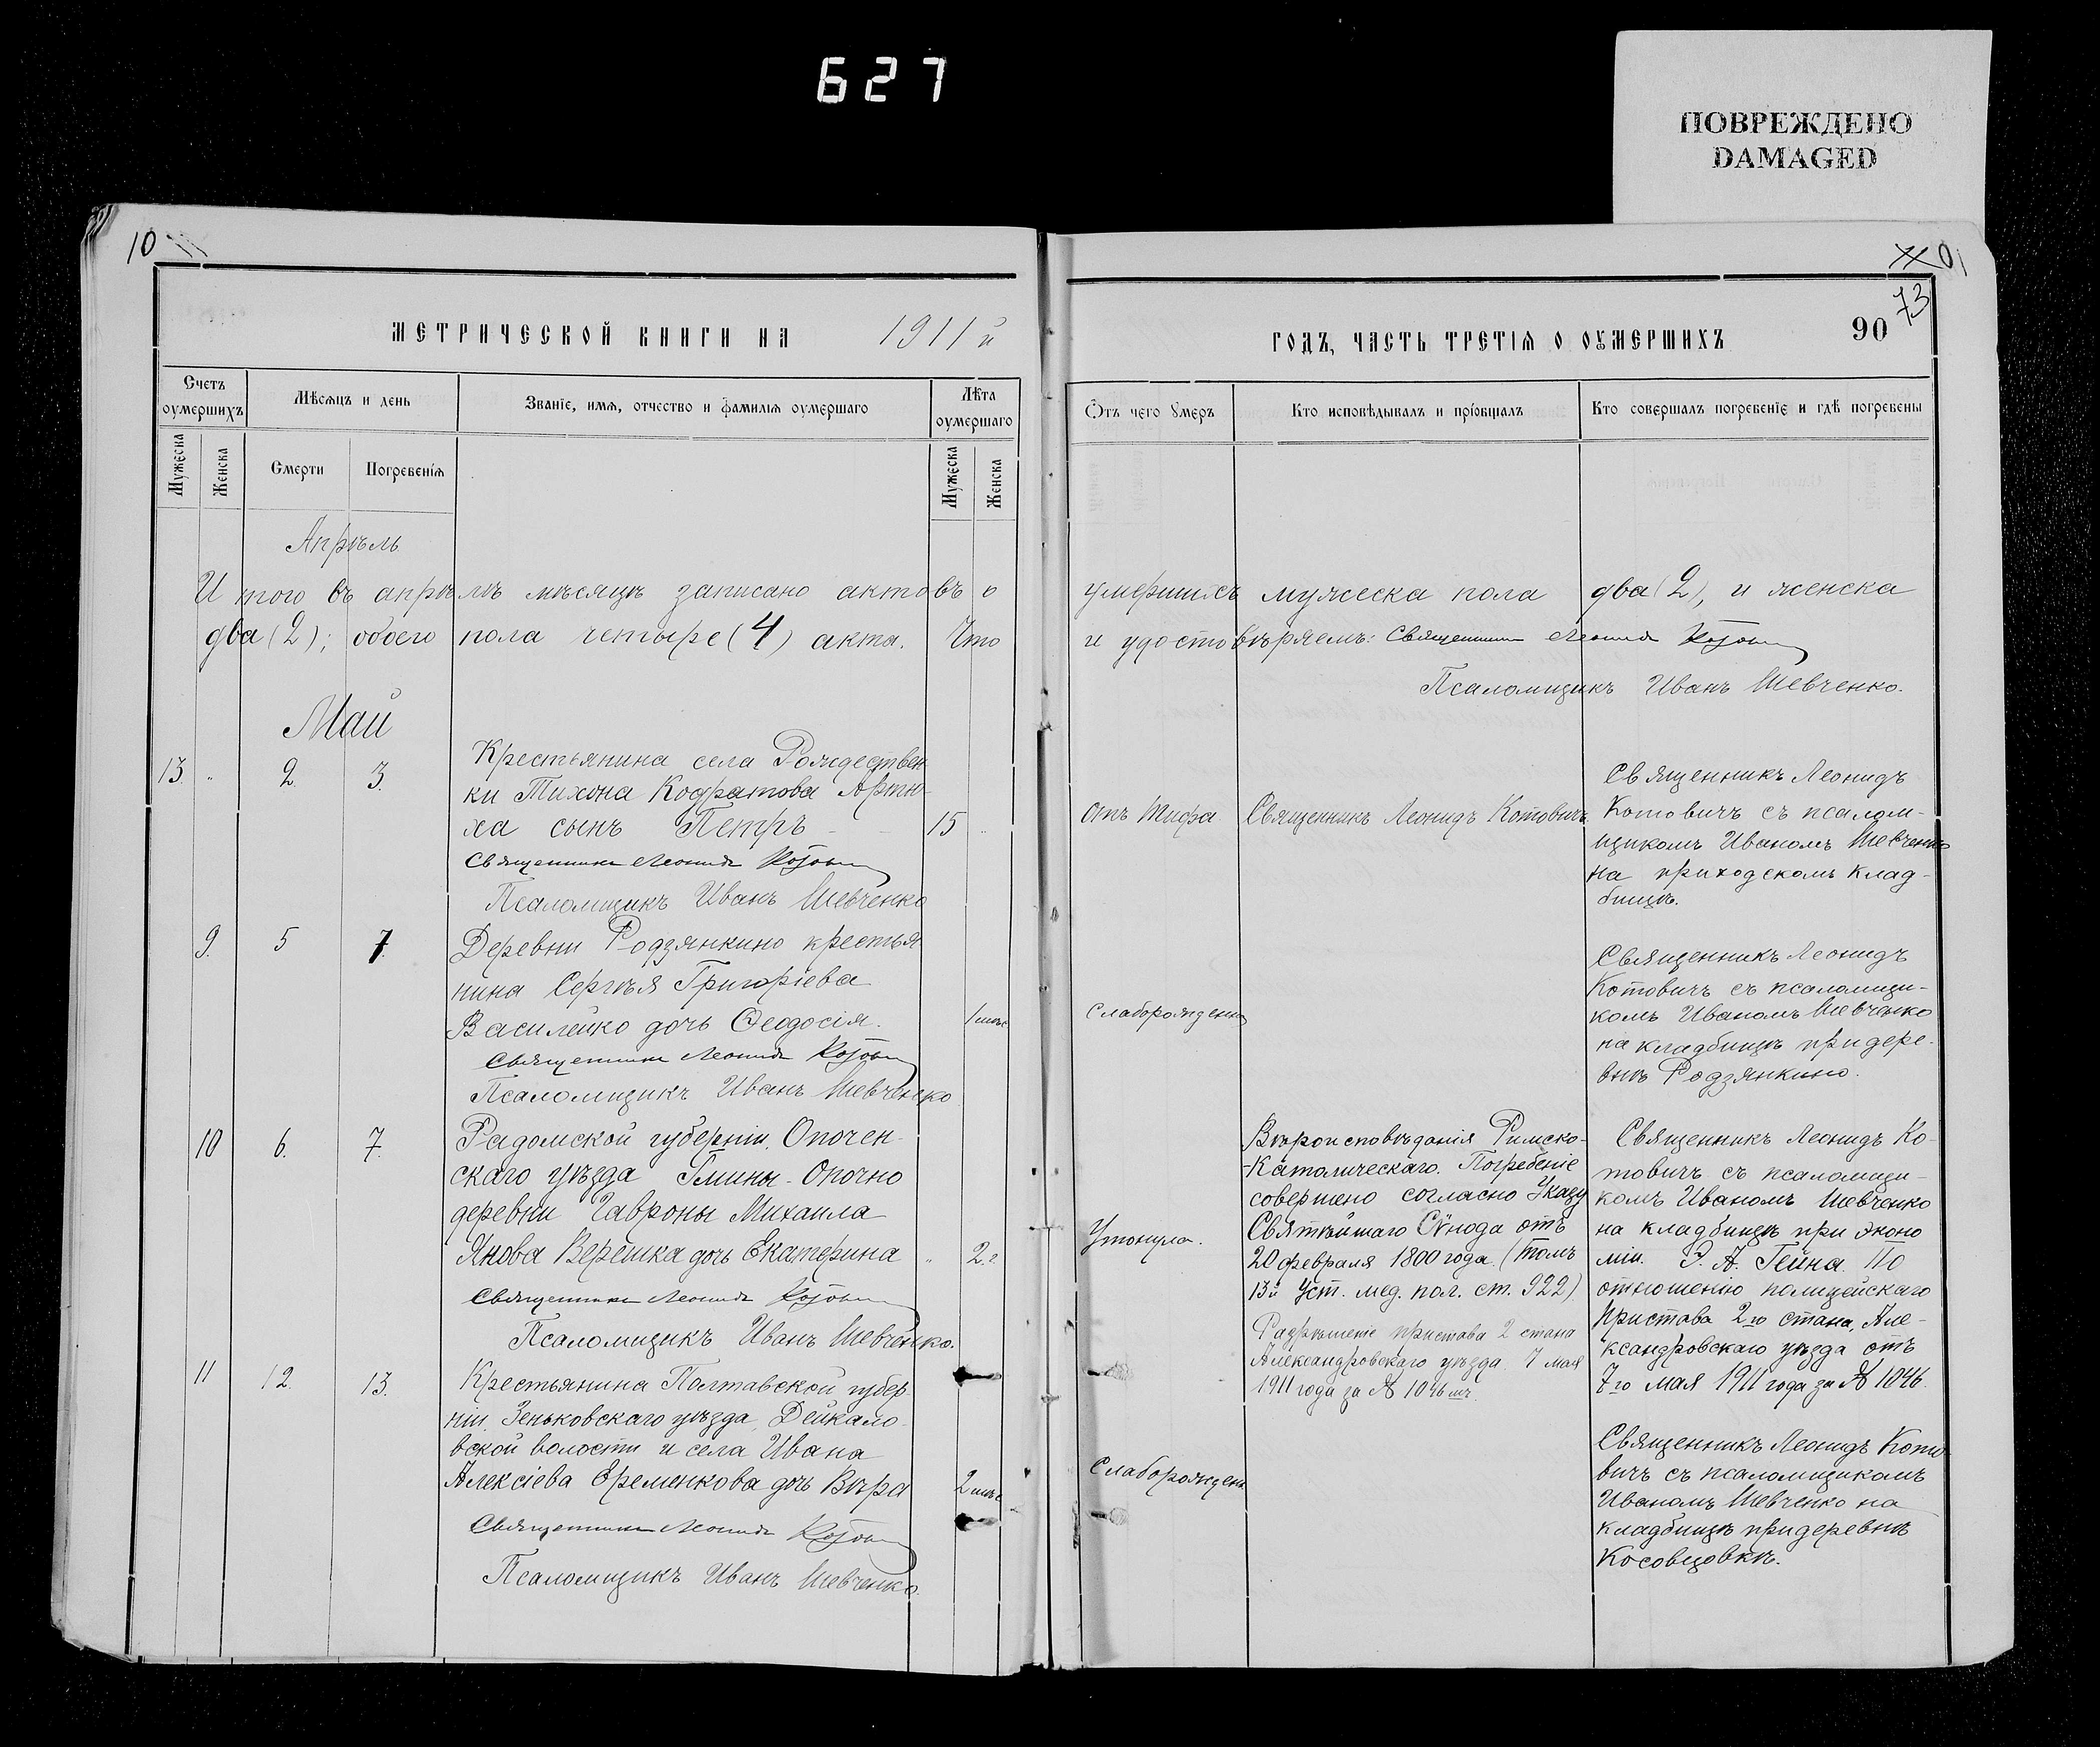 627
ПОВРЕЖДЕНО
DAMAGED
10
73
90
МЕТРИЧЕСКОЙ КНИГИ НА 1911й
ГОДЪ, ЧАСТЬ ТРЕТІѦ О ОУМЕРШИХЪ
Счетъ оумершихъ
Мѣсѧцъ и день
Званіе, имѧ, отчество и фамиліѧ оумершаго
Лѣта оумершаго
Ѿтъ чего Ꙋмеръ
Кто исповѣдывалъ и пріобщалъ
Кто совершалъ погребеніе и гдѣ погребены
Мужеска
Женска
Смерти
Погребеніѧ
Мужеска
Женска
Апрѣль
И того въ апрѣлѣ мѣсяцѣ записано актовъ о умершихъ мужеска пола два (2), и женска
два (2); обоего пола четыре (4) акта. Что и удостовѣряемъ: Священникъ Леонидъ Котовичъ
Псаломщикъ Иванъ Шевченко.
Май
13 " 2. 3.
Крестьянина села Рождествен
ки Тихона Кодратова Артю-
ха сынъ Петръ - 15 "
Священникъ Леонидъ Котовичъ
Псаломщикъ Иванъ Шевченко
отъ Тифа
Священникъ Леонидъ Котовичъ
Священникъ Леонидъ
Котовичъ съ псалом-
щикомъ Иваномъ Шевченко
на приходскомъ клад-
бищѣ.
9. 5 7.
Деревни Родзянкино крестья
нина Сергѣя Григоріева
Василейко дочь Ѳеодосія. 1 мѣс
Священникъ Леонидъ Котовичъ
Псаломщикъ Иванъ Шевченко
Слаборожденія
Священникъ Леонидъ
Котовичъ съ псаломщи-
комъ Иваномъ Шевченко
на кладбищѣ при дере-
внѣ Родзянкино.
10 6. 7.
Радомской губерніи, Опочен-
скаго уѣзда Гмины-Опочно
деревни Гавроны Михаила
Янова Верешка дочь Екатерина " 2.г
Священникъ Леонидъ Котовичъ
Псаломщикъ Иванъ Шевченко.
Утонула.
Вѣроисповѣданія Римско-
-Католическаго. Погребеніе
совершено согласно Указу
Святѣйшаго Сѵнода отъ
20 февраля 1800 года. (томъ
13й Уст. мед. пол. ст. 922)
Разрѣшеніе пристава 2 стана
Александровскаго уѣзда 7 мая
1911 года за № 1046мъ.
Священникъ Леонидъ Ко-
товичъ съ псаломщи-
комъ Иваномъ Шевченко
на кладбищѣ при эконо
міи. Э. А. Гейна. По
отношенію полицейскаго
Пристава 2го стана, Але-
ксандровскаго уѣзда отъ
7го мая 1911 года за № 1046.
11 12. 13.
Крестьянина Полтавской губер
ніи, Зеньковскаго уѣзда, Дейкало-
вской волости и села Ивана
Алексіева Еременкова дочь Вѣра 2 мѣс
Священникъ Леонидъ Котовичъ
Псаломщикъ Иванъ Шевченко.
Слаборожден.
Священникъ Леонидъ Кото
вичъ съ псаломщикомъ
Иваномъ Шевченко на
кладбищѣ при деревнѣ
Косовцовкѣ.